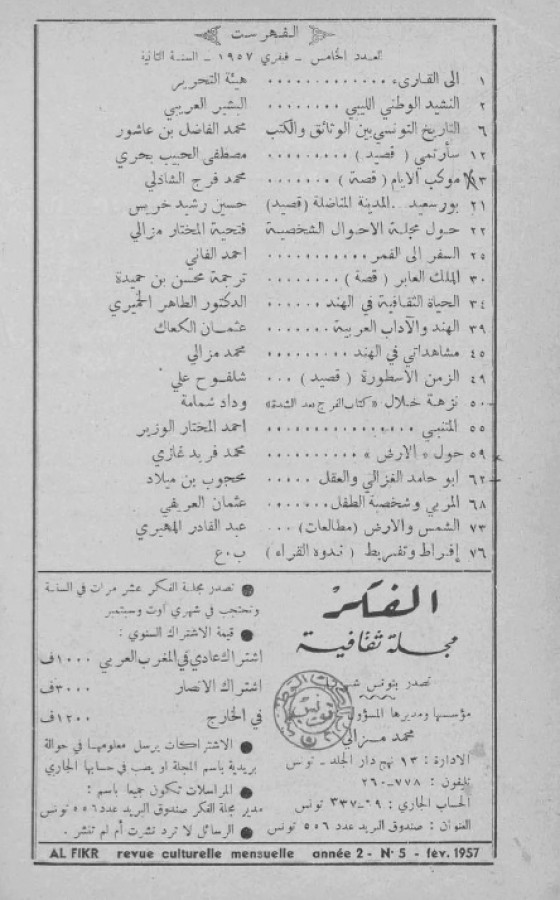 الفهرست
العدد الخامس - فيفري ١٩٥٧ - السنة الثانية
١ الى القارىء ............ هيئة التحرير
٢ النشيد الوطني الليبي ........ البشير العريبي
٦ التاريخ التونسي بين الوثائق والكتب محمد الفاضل بن عاشور
١٢ سأرتمي ( قصيد ) ......... مصطفى الحبيب بحري
١٣ موكب الايام ( قصة ) ........ محمد فرج الشاذلي
٢١ بور سعيد .. المدينة المناضلة (قصيد) حسين رشيد خريس
٢٢ حول مجلة الاحوال الشخصية فتحية المختار مزالي
٢٥ السفر الى القمر ........... احمد الفاني
٣٠ الملك العابر ( قصة ) ........ ترجمة محسن بن حميدة
٣٤ الحياة الثقافية في الهند ...... الدكتور الطاهر الخميري
٣٩ الهند والآداب العربية ....... عثمان الكعاك
٤٥ مشاهداتي في الهند .......... محمد مزالي
٤٩ الزمن الاسطورة ( قصيد ) ... شلفوح علي
٥٠ نزهة خلال «كتاب الفرج بعد الشدة» وداد شمامة
٥٥ المتنبي ................ احمد المختار الوزير
٥٩ حول « الارض » .......... محمد فريد غازي
٦٢ ابو حامد الغزالي والعقل ..... محجوب بن ميلاد
٦٨ المربي وشخصية الطفل ....... عثمان العريفي
٧٣ الشمس والارض (مطالعات) ... عبد القادر المهيري
٧٦ إفراط وتفريط ( ندوة القراء ) ب.ع
الفكر
مجلة ثقافية
تصدر بتونس
مؤسسها ومديرها المسؤول
محمد مزالي
الادارة : ١٣ نهج دار الجلد - تونس
تليفون : ٧٧٨-٢٦٠
الحساب الجاري : ٢٩-٣٣٧ تونس
العنوان : صندوق البريد عدد ٥٥٦ تونس
● تصدر مجلة الفكر عشر مرات في السنة
وتحتجب في شهري اوت وسبتمبر
● قيمة الاشتراك السنوي :
اشتراك عادي في المغرب العربي ١٠٠٠ف
اشتراك الانصار ٣٠٠٠ف
في الخارج ١٢٠٠ف
● الاشتراكات يرسل معلومها في حوالة
بريدية باسم المجلة او يصب في حسابها الجاري
● المراسلات تكون جميعا باسم :
مدير مجلة الفكر صندوق البريد عدد ٥٥٦ تونس
● الرسائل لا ترد نشرت أم لم تنشر .
AL FIKR revue culturelle mensuelle année 2 - N° 5 - fév. 1957